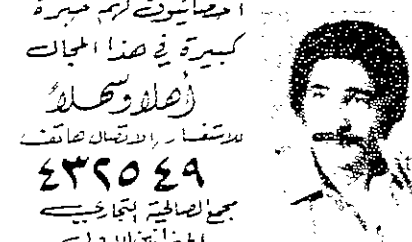 اخصائيون لهم خبرة
كبيرة في هذا المجال
أهلاً وسهلاً
للاستفسار الاتصال هاتف
٤٣٢٥٤٩
مجمع الصالحية التجاري